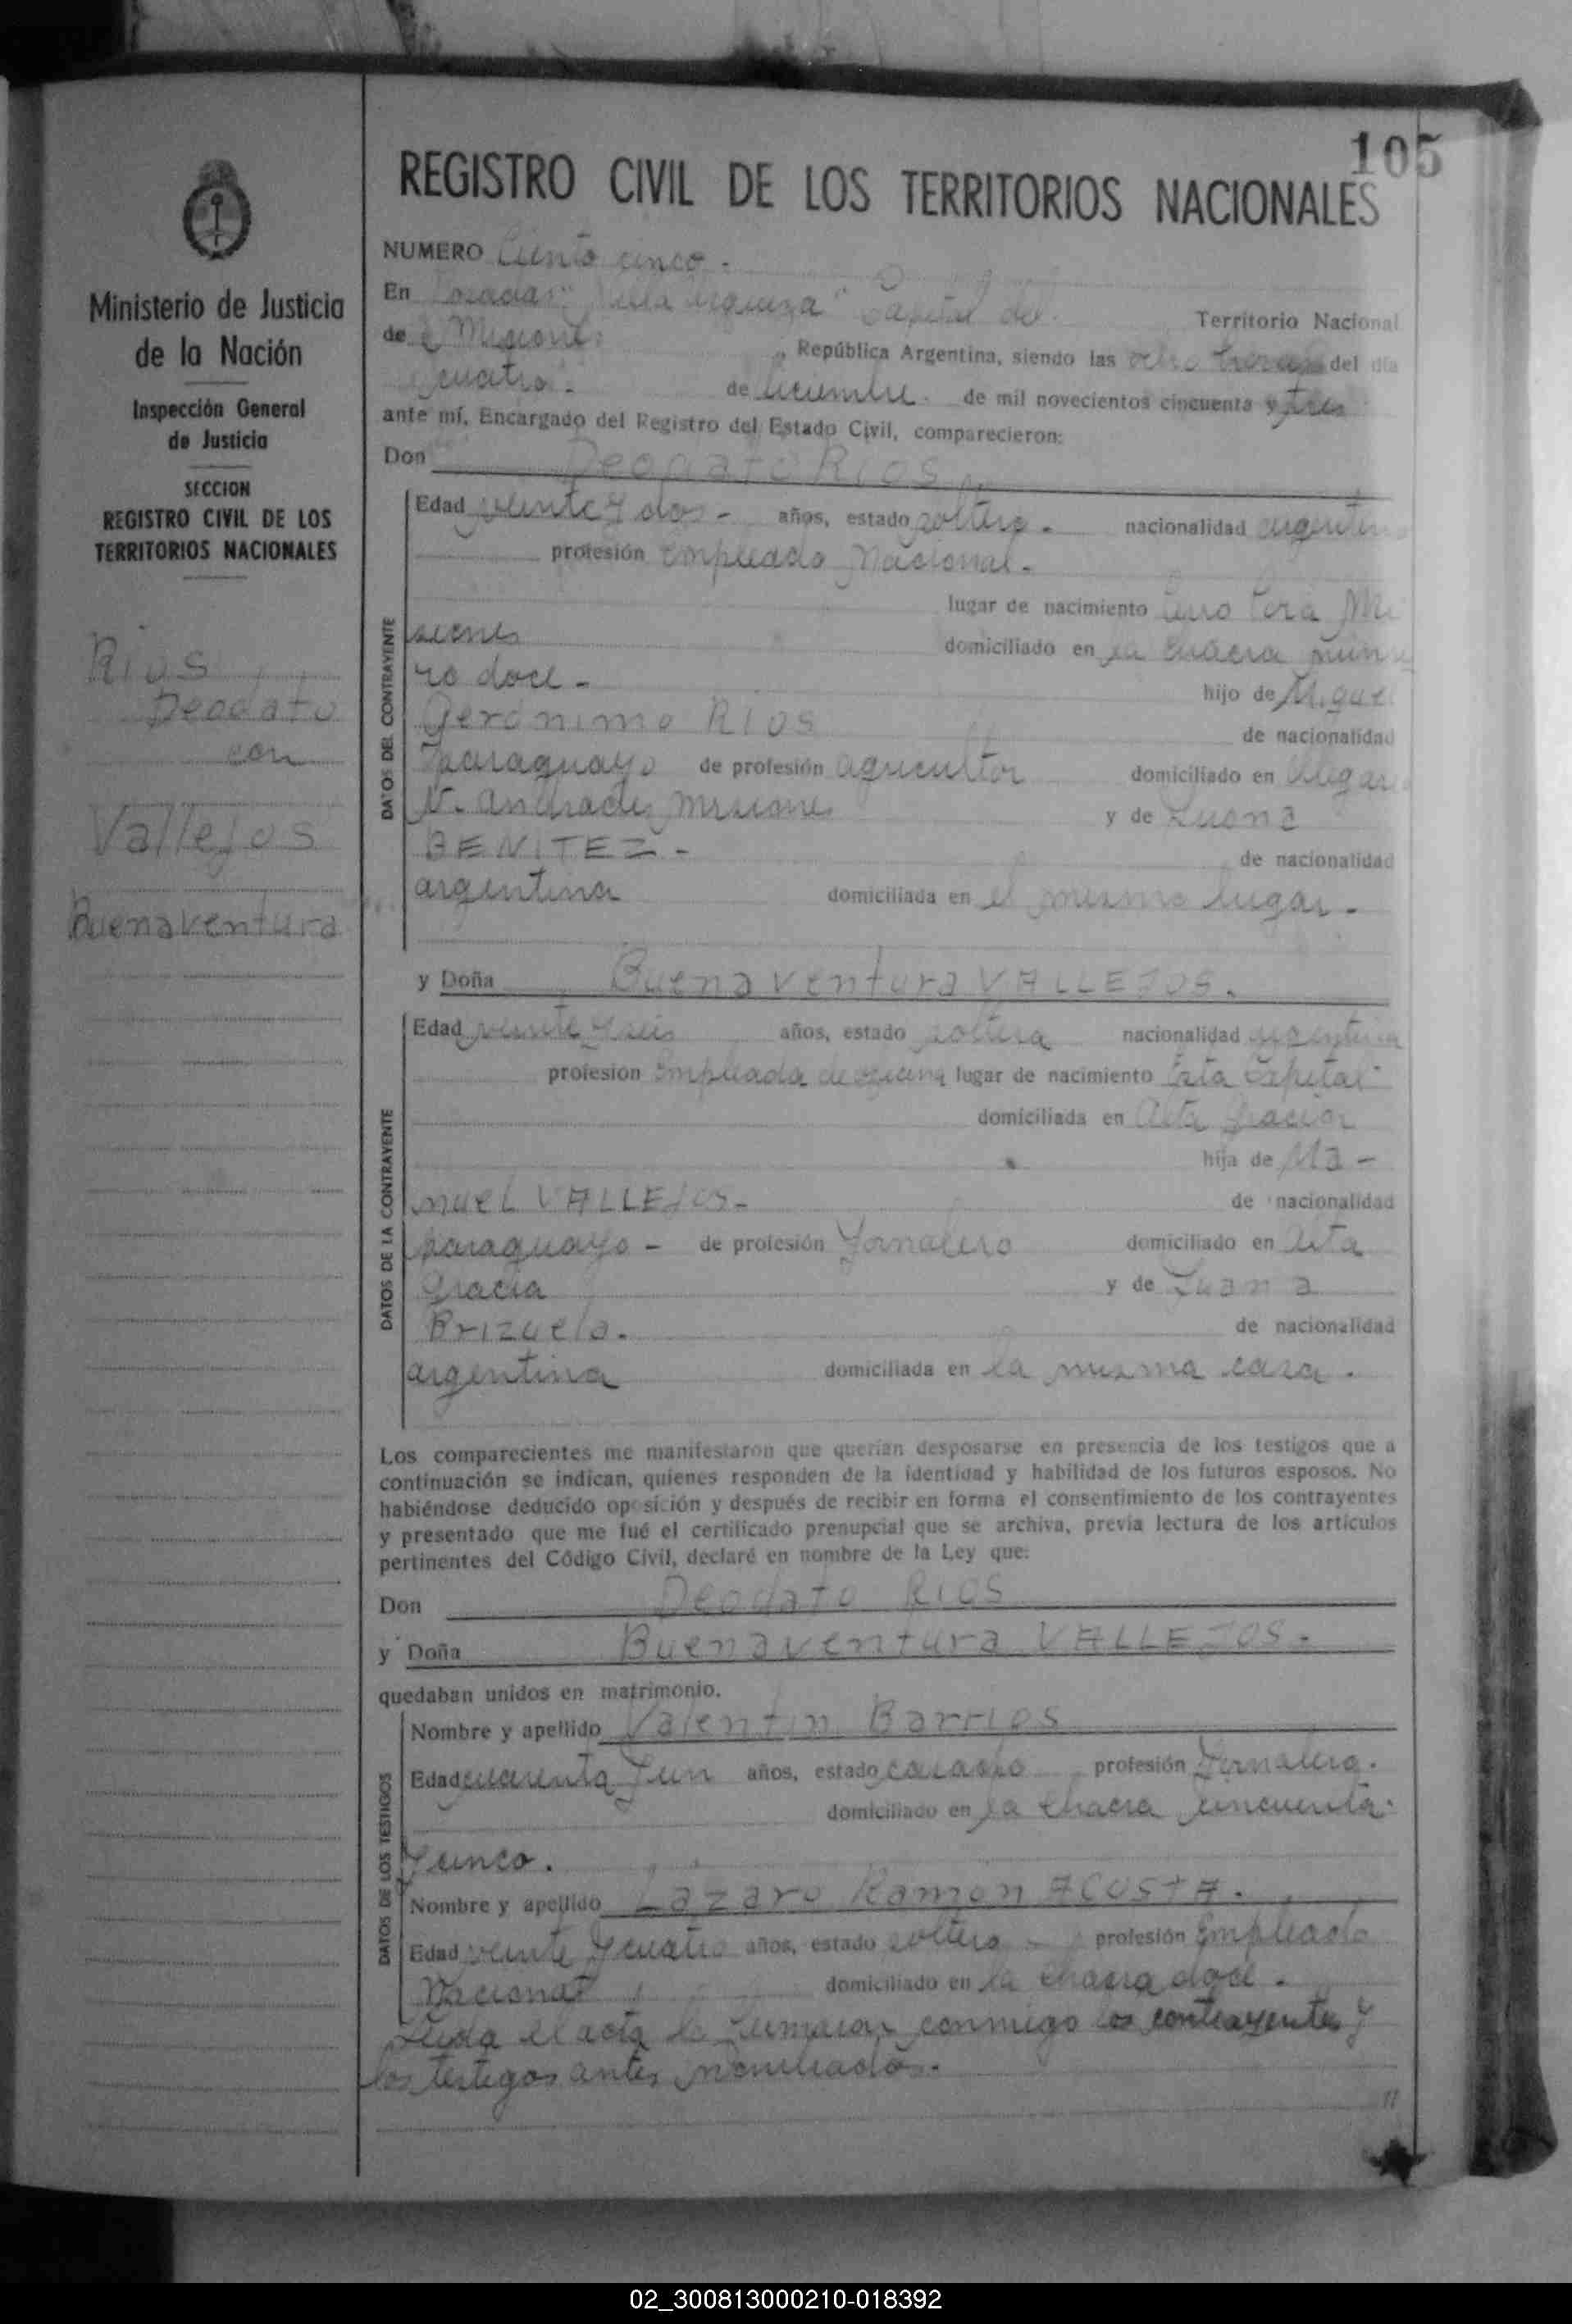 105
REGISTRO CIVIL DE LOS TERRITORIOS NACIONALES
Ministerio de Justicia
de la Nación
Inspección General
de Justicia
SECCION
REGISTRO CIVIL DE LOS
TERRITORIOS NACIONALES
Rios
Deodato
con
Vallejos
Buenaventura
NUMERO Ciento cinco.-
En Posadas "Villa Urquiza" Capital del Territorio Nacional
de Misiones, República Argentina, siendo las ocho horas del día
cuatro.- de diciembre de mil novecientos cincuenta y tres
ante mí, Encargado del Registro del Estado Civil, comparecieron:
Don Deodato RIOS
DATOS DEL CONTRAYENTE
Edad veinte y dos- años, estado soltero. nacionalidad argentino
profesión Empleado Nacional.
lugar de nacimiento Cerro Corá Mi
siones domiciliado en la chacra núme
ro doce.- hijo de Miguel
Gerónimo RIOS de nacionalidad
Paraguayo de profesión agricultor domiciliado en
N. Andrade, Misiones y de Juana
BENITEZ.- de nacionalidad
argentina domiciliada en el mismo lugar.
y Doña Buenaventura VALLEJOS.
DATOS DE LA CONTRAYENTE
Edad veinte y seis años, estado soltera nacionalidad argentina
profesión Empleada de oficina lugar de nacimiento Esta Capital
domiciliada en Alta Gracia
hija de Ma-
nuel VALLEJOS.- de nacionalidad
paraguayo- de profesión Jornalero domiciliado en Alta
Gracia y de Juana
Brizuela. de nacionalidad
argentina domiciliada en la misma casa.
Los comparecientes me manifestaron que querían desposarse en presencia de los testigos que a
continuación se indican, quienes responden de la identidad y habilidad de los futuros esposos. No
habiéndose deducido oposición y después de recibir en forma el consentimiento de los contrayentes
y presentado que me fué el certificado prenupcial que se archiva, previa lectura de los artículos
pertinentes del Código Civil, declaré en nombre de la Ley que:
Don Deodato RIOS
y Doña Buenaventura VALLEJOS.
quedaban unidos en matrimonio.
DATOS DE LOS TESTIGOS
Nombre y apellido Valentin Barrios
Edad cuarenta y un años, estado casado profesión Jornalero.
domiciliado en la chacra cincuenta
y cinco.
Nombre y apellido Lazaro Ramon ACOSTA.
Edad veinte y cuatro años, estado soltero- profesión Empleado
Nacional domiciliado en la chacra doce.
Leida el acta la firmaron conmigo los contrayentes y
los testigos antes nombrados.
02_300813000210-018392